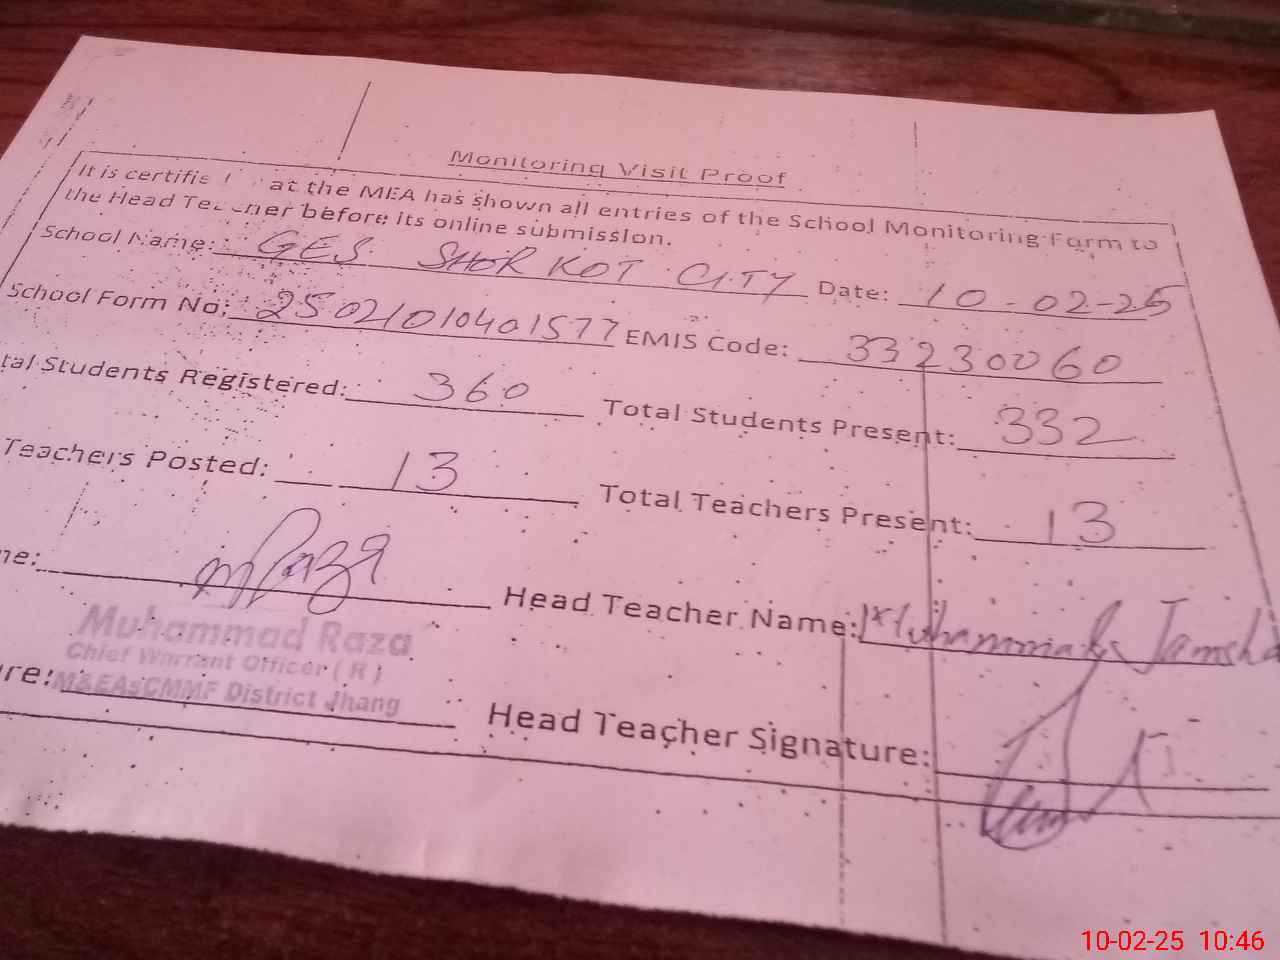 Monitoring Visit Proof
It is certifie at the MEA has shown all entries of the School Monitoring Form to
the Head Teacher before its online submission.
School Name: GES SHOR KOT CITY Date: 10-02-25
School Form No: 25021010401577 EMIS Code: 33230060
tal Students Registered: 360 Total Students Present: 332
Teachers Posted: 13 Total Teachers Present: 13
me: M Raza Head Teacher Name: Muhammad Jamsha
Muhammad Raza
Chief Warrant Officer ( R )
M&EAsCMMF District Jhang
re: Head Teacher Signature:
10-02-25 10:46